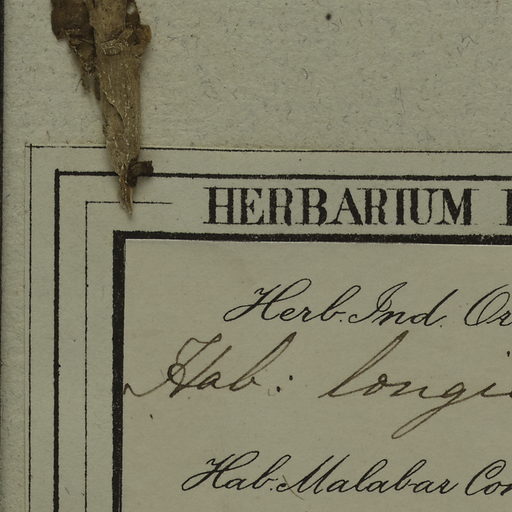 HERBARIUM
Herb. Ind. Or
Hab: longi
Hab. Malabar Con